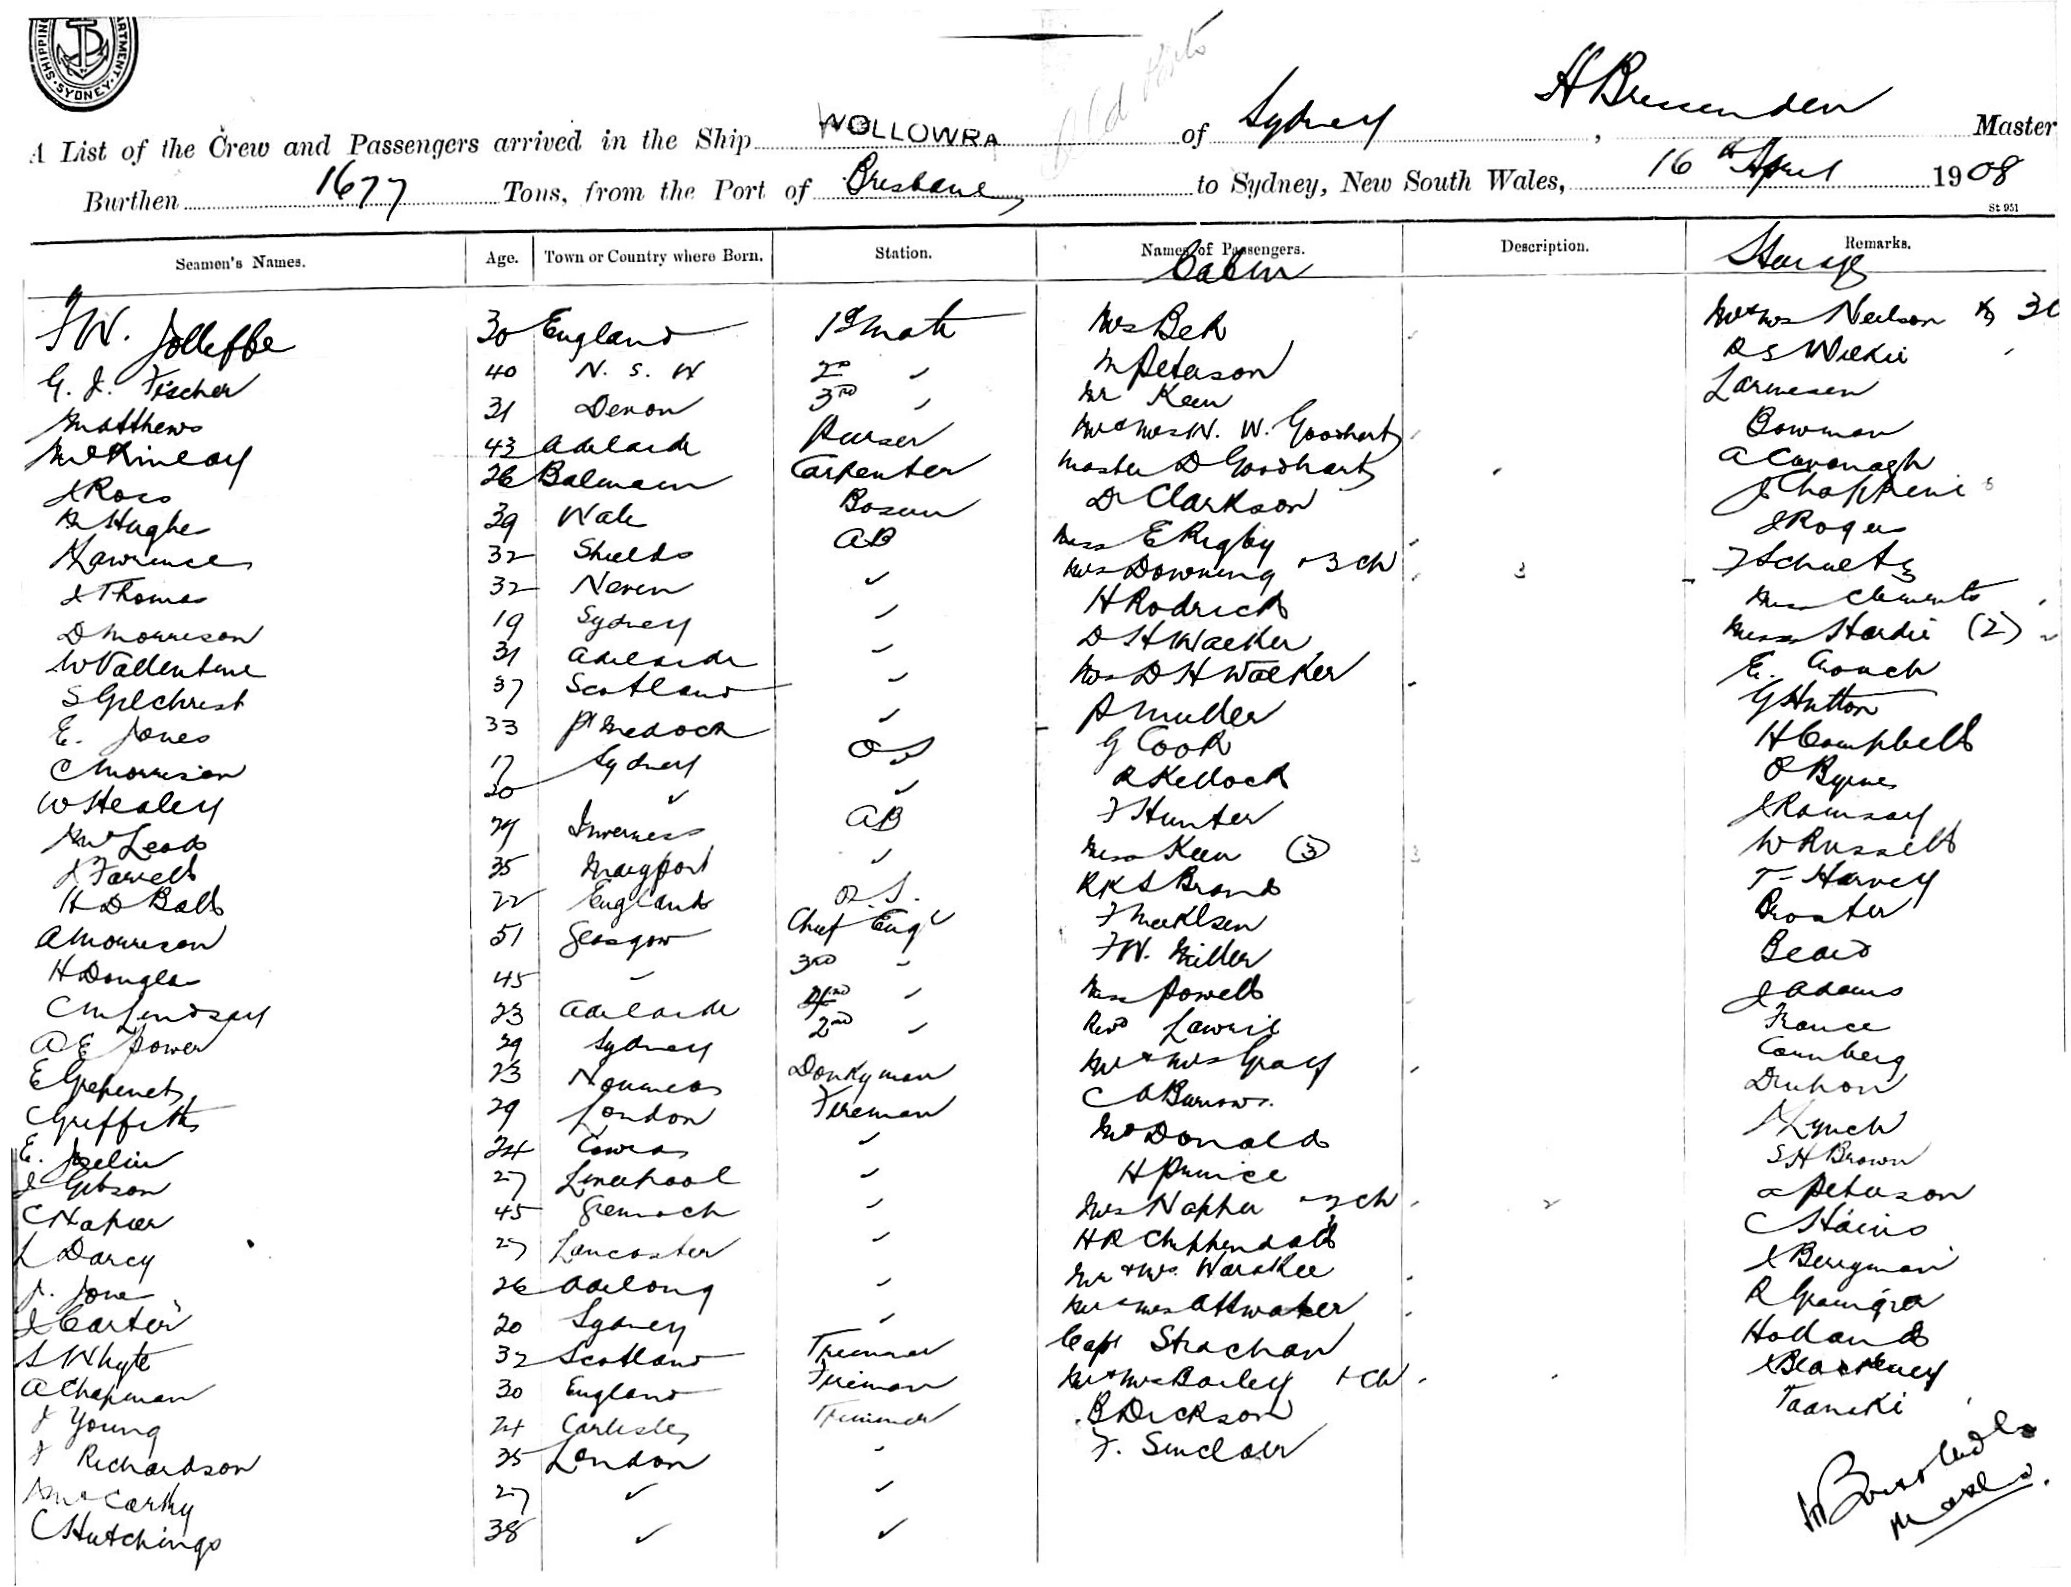 SHIPPING DEPARTMENT SYDNEY
Old Ports
A List of the Crew and Passengers arrived in the Ship WOLLOWRA of Sydney, H Bressenden Master
Burthen 1677 Tons, from the Port of Brisbane, to Sydney, New South Wales, 16th April 1908
St 951
Seamen's Names. Age. Town or Country where Born. Station. Names of Passengers. Description. Remarks.
Cabin
30 England 1st Mate Mrs Bek Mr & Mrs Neilson
G. J. Fischer 40 N. S. W 2nd ✓ M Peterson
Matthews 31 Devon 3RD ✓ Mr Keen Larnesen
McKinlay 43 Adelaide Purser Mr & Mrs W. W. Goodhart Bowman
J Ross 26 Balmain Carpenter Master D Goodhart A Cavanagh
R Hughe 39 Wale Bosun Dr Clarkson
Lawrence 32 Shields AB Miss E Rigby J Roger
J Thomas 32 Nevin ✓ Mrs Downing + 3 ch 3 F Schuetz
D Morrison 19 Sydney ✓ H Rodrick Miss Clements
W Vallentine 31 Adelaide ✓ D H Walker Misses Hardie (2)
S Gilchrist 37 Scotland ✓ Mrs D H Walker E. Crouch
E. Jones 33 Pt Medock ✓ A Muller G Hutton
C Morrison 17 Sydney OS G Cook H Campbell
W Healey 20 ✓ ✓ R Kellock O Byrne
McLeod 29 Inverness AB F Hunter J Ramsay
J Farrell 35 Maryport ✓ Miss Keen (3) 3 W Russell
H D Ball 22 England O. S. R K S Brand T Harvey
A Morrison 51 Glasgow Chief Engr Proster
H Dougla 45 3RD F W. Miller Beard
C M Lindsay 23 Adelaide Miss Powell J Adams
A E Power 29 Sydney 2nd ✓ Revd Lawrie France
23 Noumea Donkyman Mr & Mrs Gray Cannberg
C Griffiths 29 London Fireman C A Burrows.
E. 24 Cowra ✓ McDonald Lynch
J Gibson 27 Liverpool ✓ H Prince S H Brown
C Napier 45 Greenock ✓ Mrs Napper + 2 ch 2 Peterson
L Darcy 27 Lancaster ✓ H R Chippendall C Stains
J. Jone 26 Adelong ✓ Mr & Mrs. J Bergman
J Carter 20 Sydney ✓ Mr & Mrs Attwater R
S Whyte 32 Scotland Trimmer Capt Strachan Holland
A Chapman 30 England Fireman Mr & Mrs Bailey + Ch
J Young 24 Carlisle Trimmer B Dickson
J Richardson 35 London F. Sinclair
McCarthy 27 ✓ ✓
C Hutchings 38 ✓ ✓